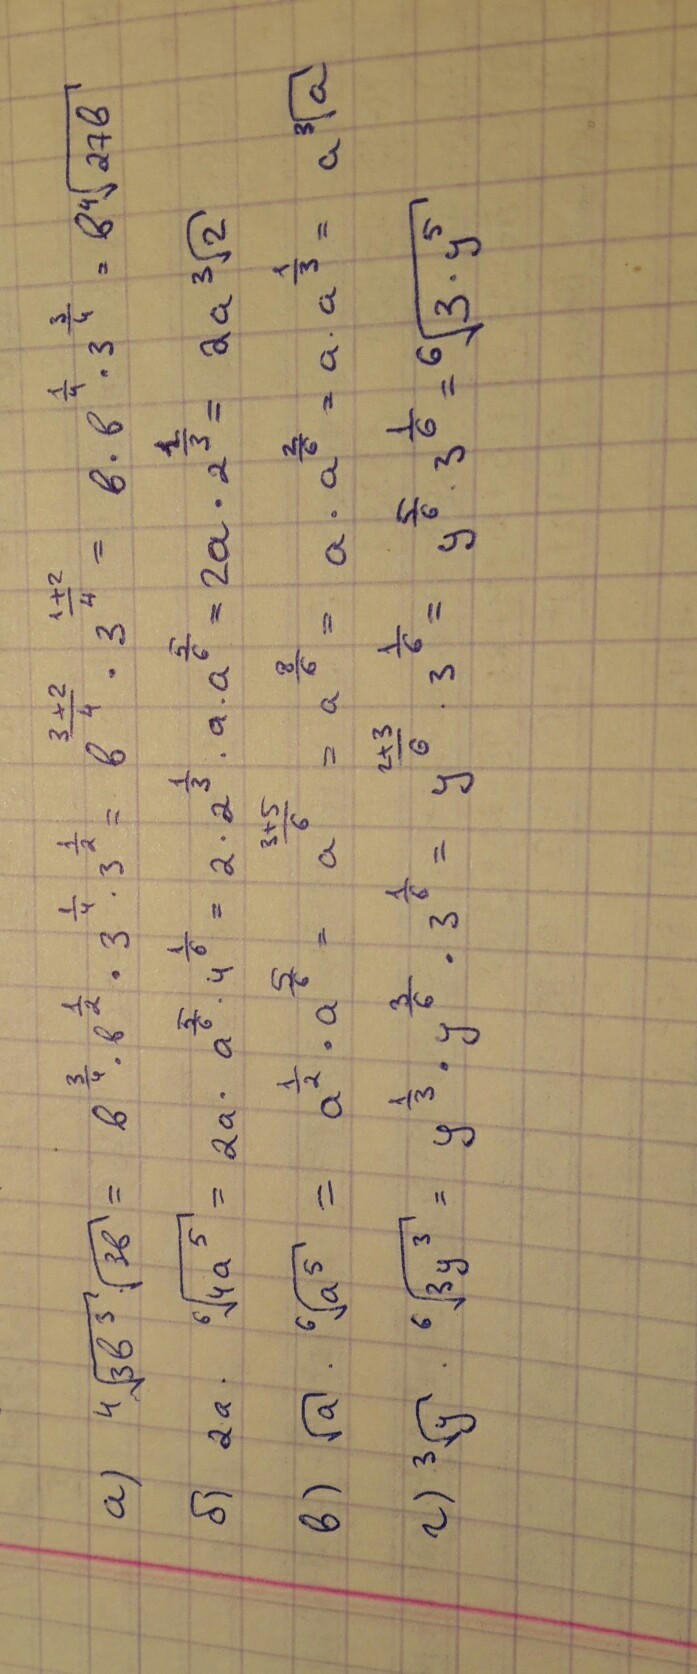 а) ⁴√(3b³) √(3b) = b^(3/4) · b^(1/2) · 3^(1/4) · 3^(1/2) = b^((3+2)/4) · 3^((1+2)/4) = b · b^(1/4) · 3^(3/4) = b ⁴√(27b)
б) 2a · ⁶√(4a⁵) = 2a · a^(5/6) · 4^(1/6) = 2 · 2^(1/3) · a · a^(5/6) = 2a · 2^(1/3) = 2a ³√2
в) √a · ⁶√(a⁵) = a^(1/2) · a^(5/6) = a^((3+5)/6) = a^(8/6) = a · a^(2/6) = a · a^(1/3) = a ³√a
г) ³√y · ⁶√(3y³) = y^(1/3) · y^(3/6) · 3^(1/6) = y^((2+3)/6) · 3^(1/6) = y^(5/6) · 3^(1/6) = ⁶√(3 · y⁵)